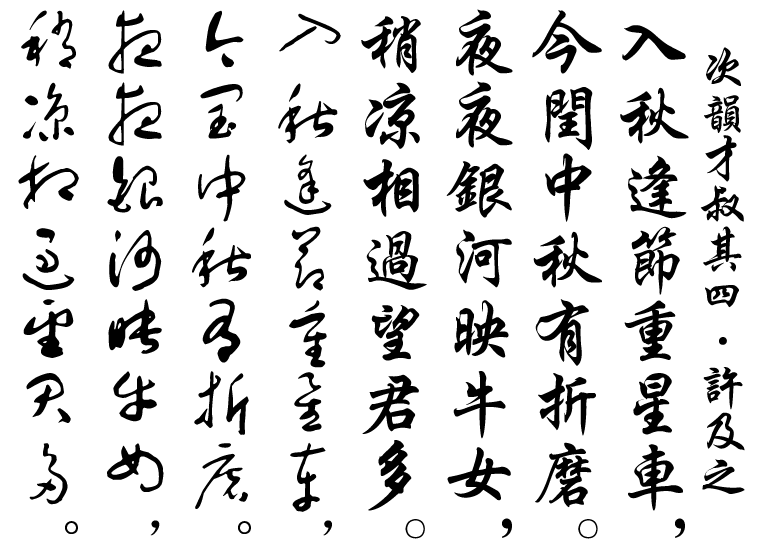 次韻才叔其四·許及之
入秋逢節重星車，
今閏中秋有折磨。
夜夜銀河映牛女，
稍凉相過望君多。
入秋逢節重星車，
今閏中秋有折磨。
夜夜銀河映牛女，
稍凉相過望君多。